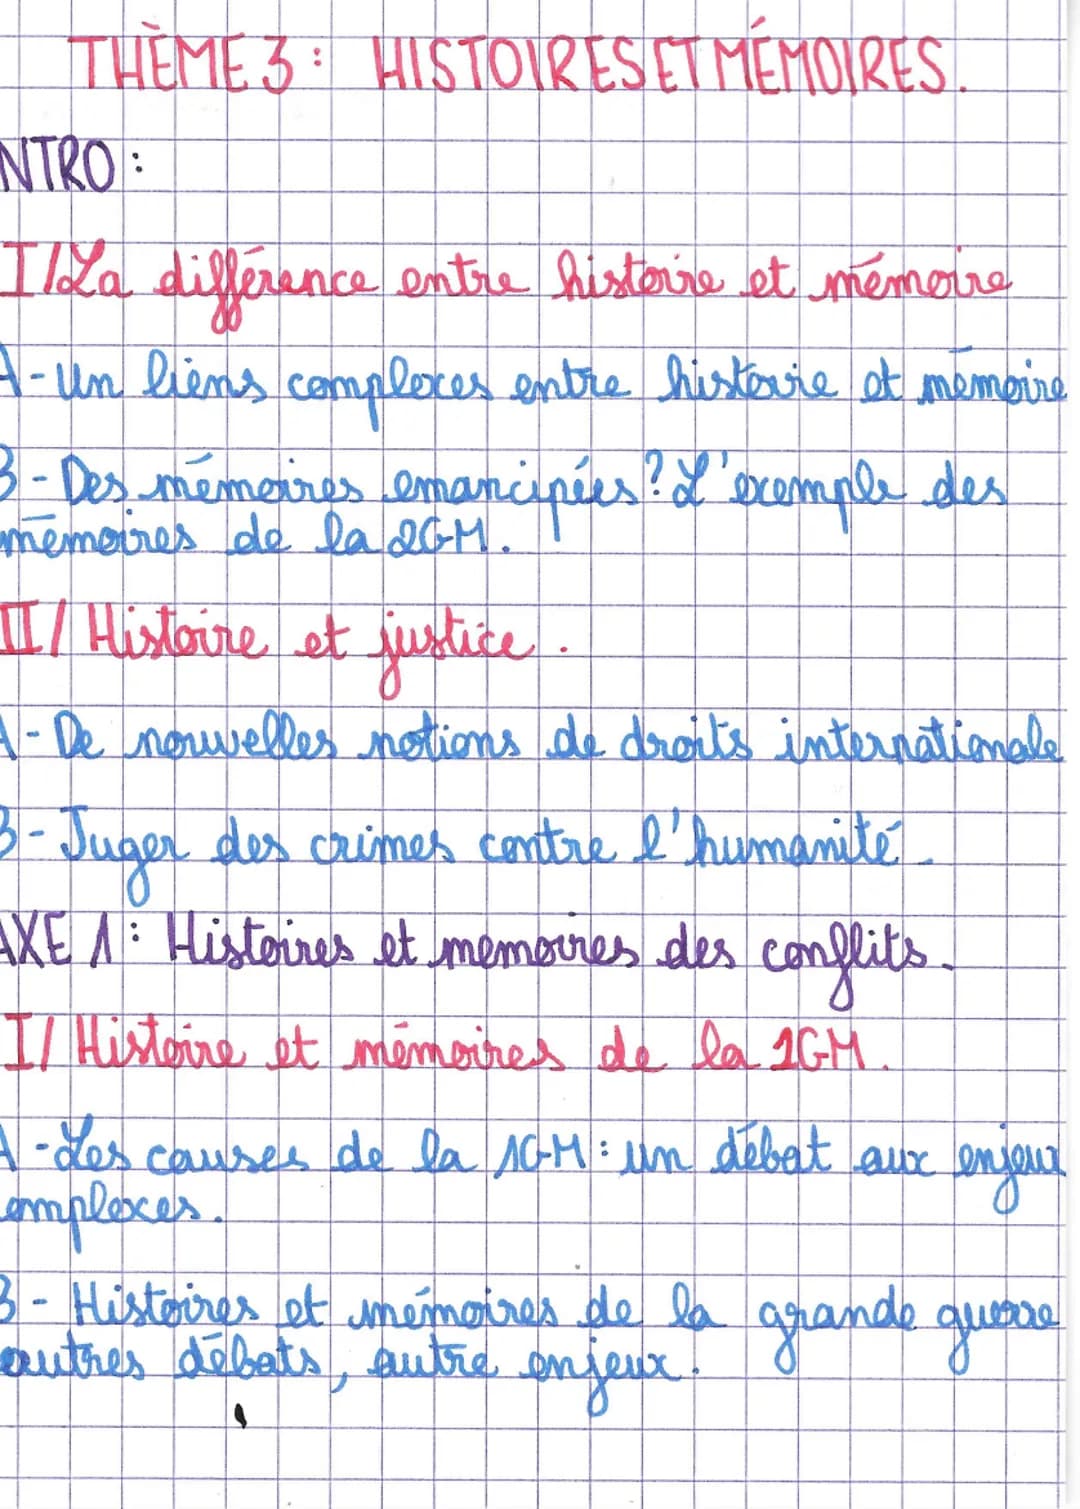 THÈME 3 : HISTOIRES ET MÉMOIRES.
NTRO :
I/La différence entre histoire et mémoire
A-Un liens complexes entre histoire et mémoire
B-Des mémoires emancipées? L'exemple des
mémoires de la 2GM.
II/ Histoire et justice.
A-De nouvelles notions de droits internationale
B-Juger des crimes contre l'humanité.
AXE 1: Histoires et memoires des conflits.
I/ Histoire et mémoires de la 1GM.
A-Les causes de la 1GM : un débat aux enjeux
omplexes.
B- Histoires et mémoires de la grande guerre
autres débats, autre enjeux.